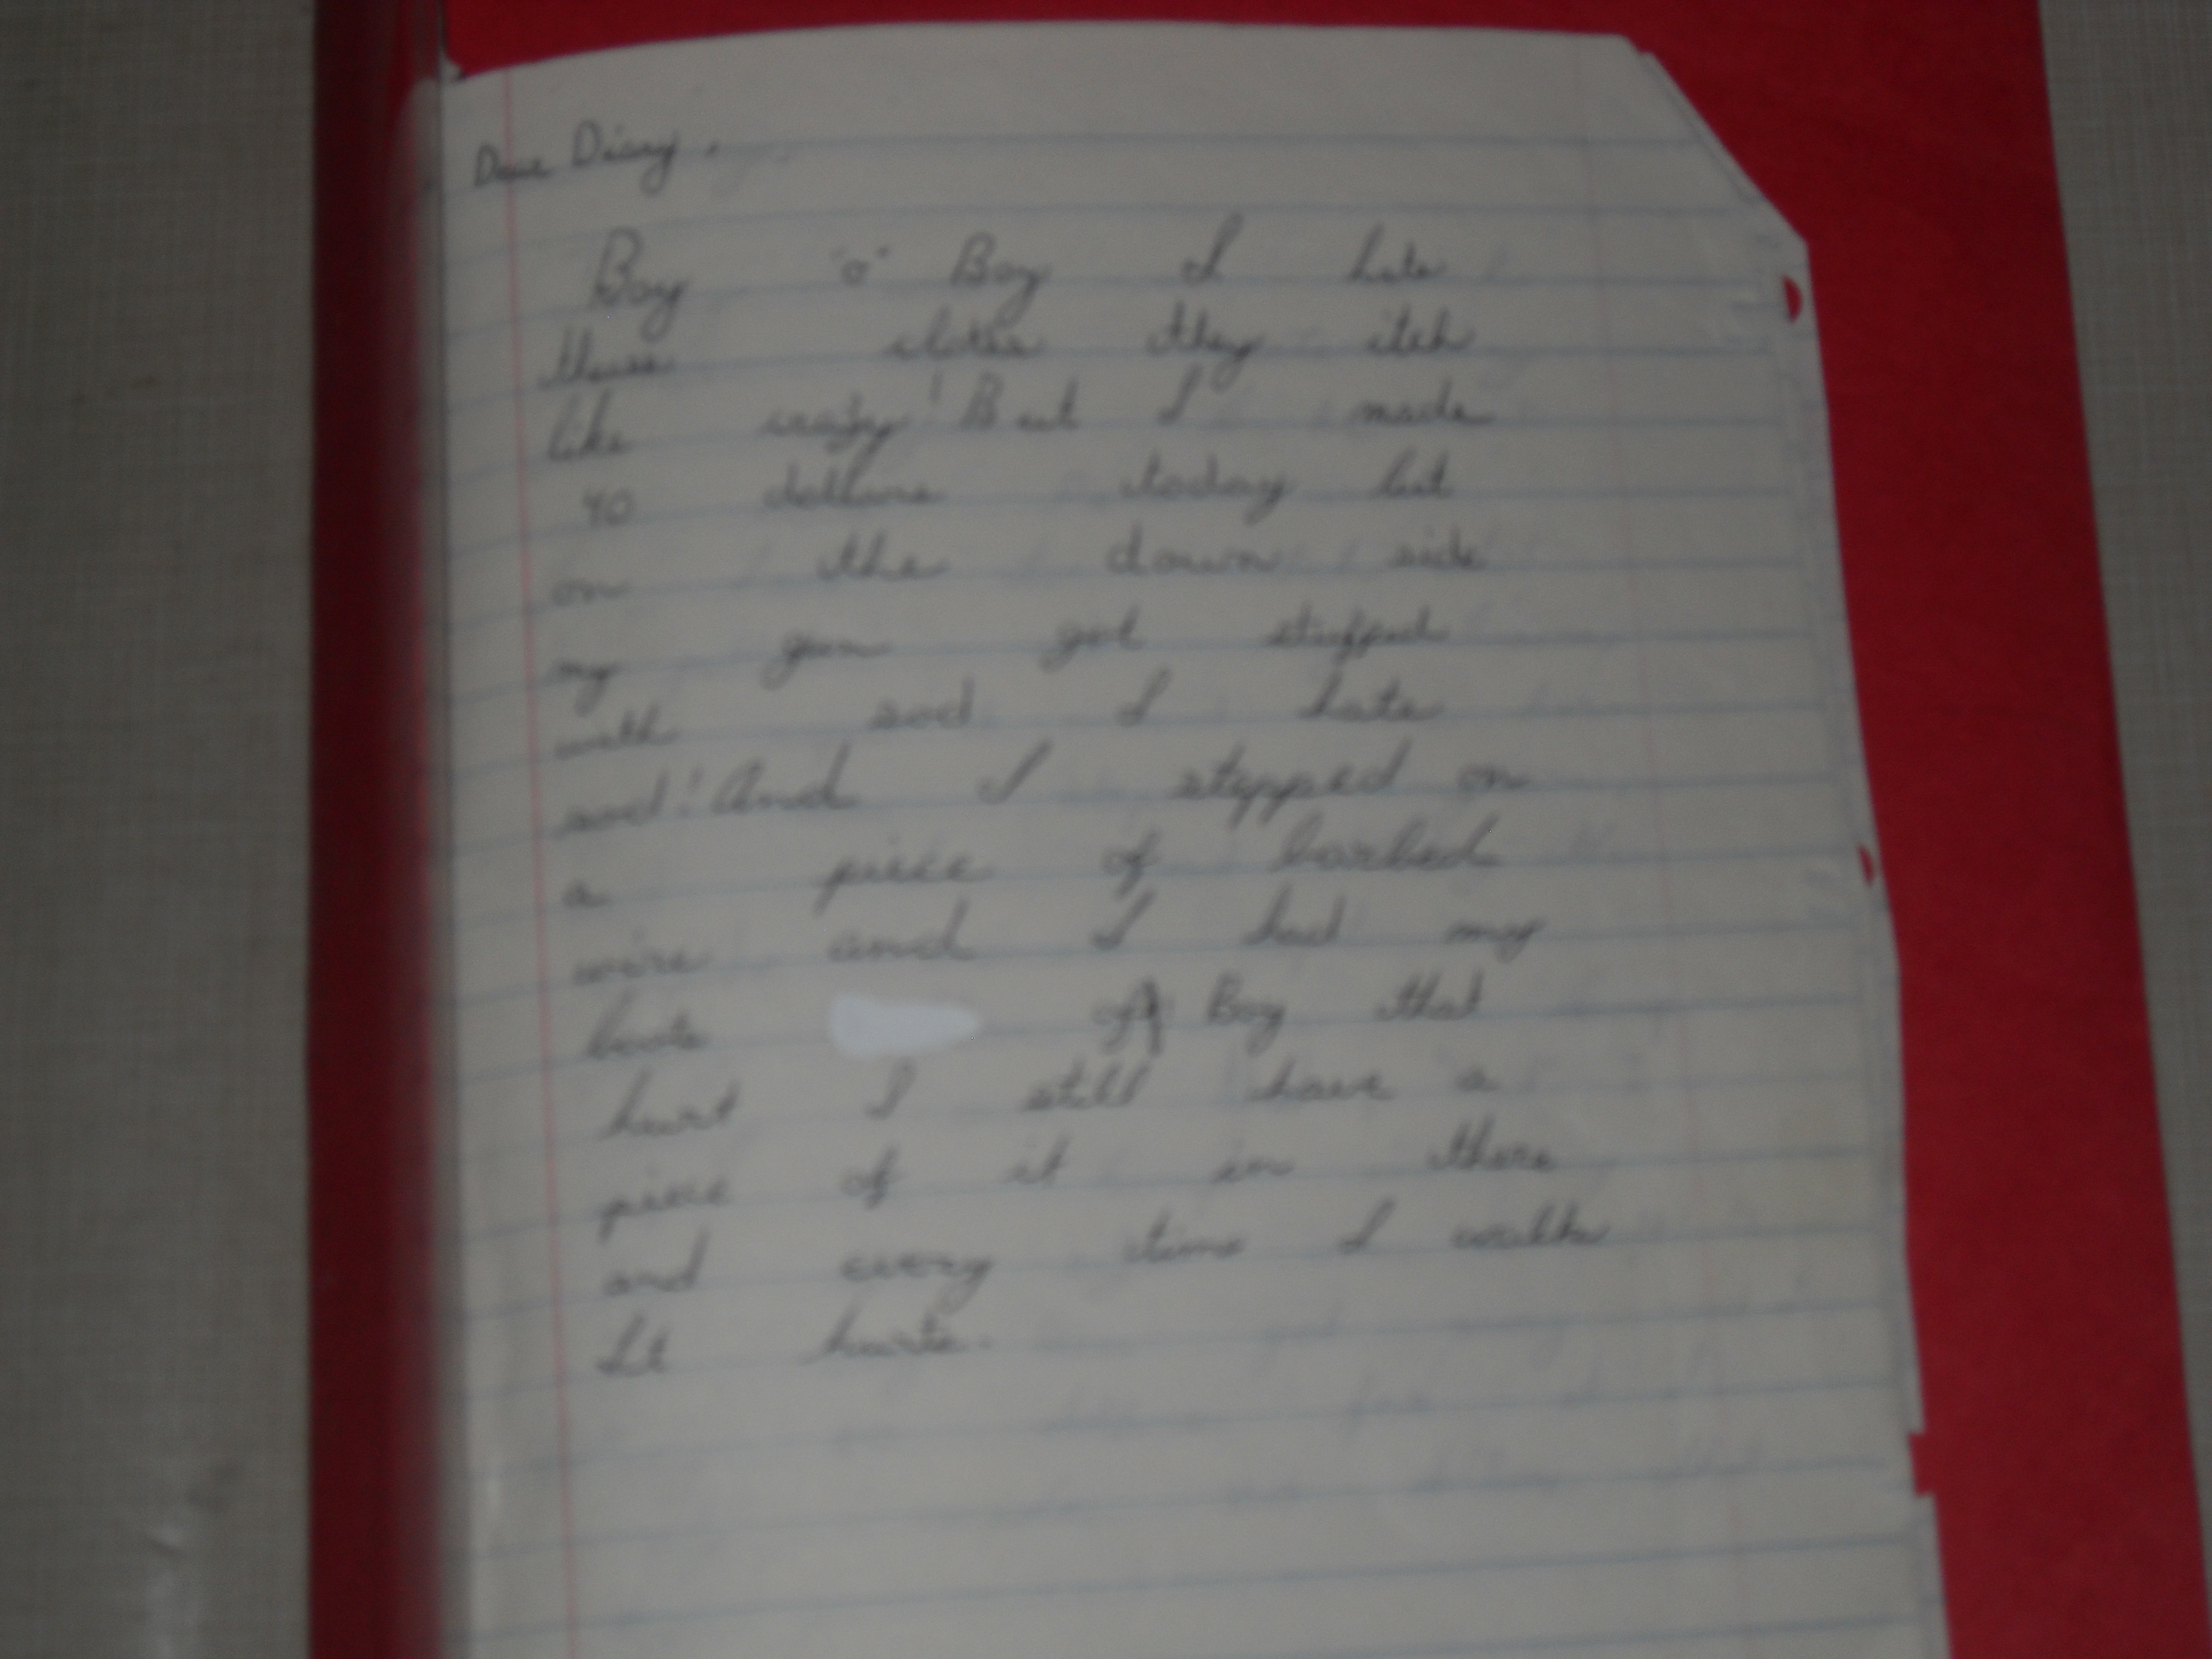 Dear Diary,
Boy "o" Boy I hate
these clothes they itch
like crazy! But I made
40 dollars today but
on the down side
my gun got stuffed
with sod I hate
sod! And I stepped on
a piece of barbed
wire and I had my
boots off Boy that
hurt I still have a
piece of it in there
and every time I walk
It hurts.